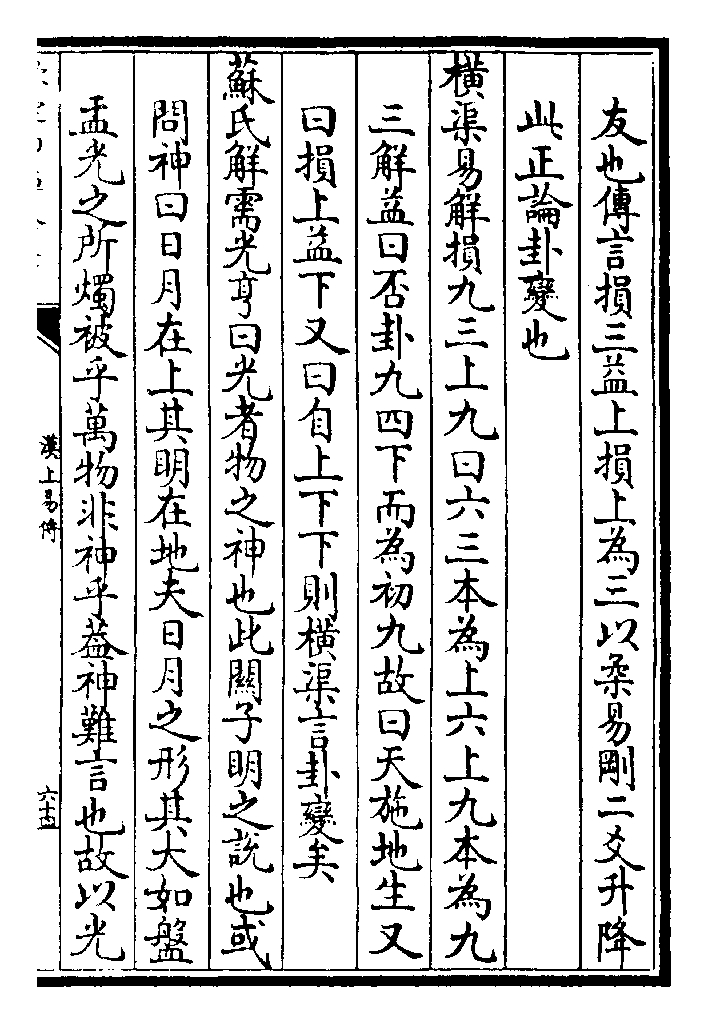 友也傳言損三益上損上為三以柔易剛二爻升降
此正論卦變也
橫渠易解損九三上九曰六三本為上六上九本為九
三解益曰否卦九四下而為初九故曰天施地生又
曰損上益下又曰自上下下則橫渠言卦變矣
蘇氏解需光亨曰光者物之神也此關子明之說也或
問神曰日月在上其明在地夫日月之形其大如盤
盂光之所燭被乎萬物非神乎葢神難言也故以光
漢上易傳
六十四